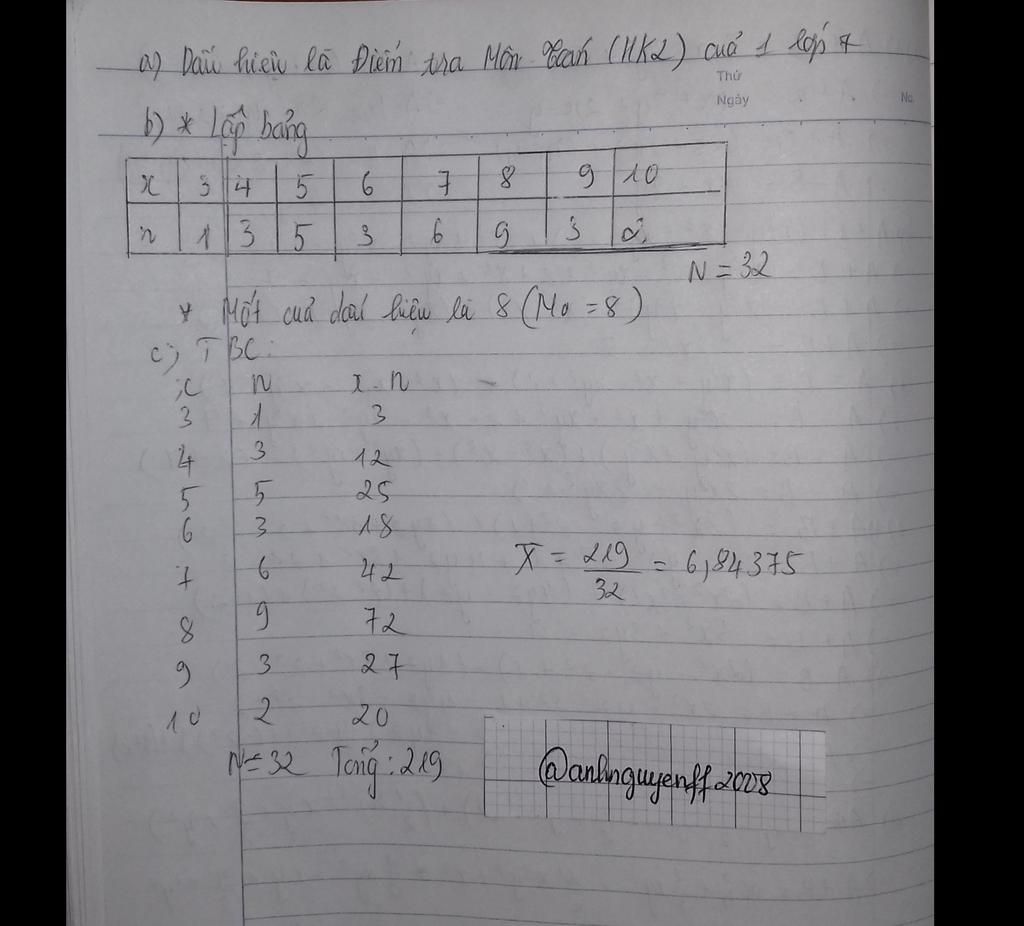 a) Dấu hiệu là Điểm tra Môn Toán (HK2) cuả 1 lớp 7
Thứ
Ngày
No.
b) * Lập bảng
x 3 4 5 6 7 8 9 10
n 1 3 5 3 6 9 3 2
N = 32
* Mốt cuả dấu hiệu là 8 (Mo = 8)
c) TBC:
x n x.n
3 1 3
4 3 12
5 5 25
6 3 18
7 6 42
X̄ = 219/32 = 6,84375
8 9 72
9 3 27
10 2 20
N = 32 Tổng: 219
@anhnguyenff2008